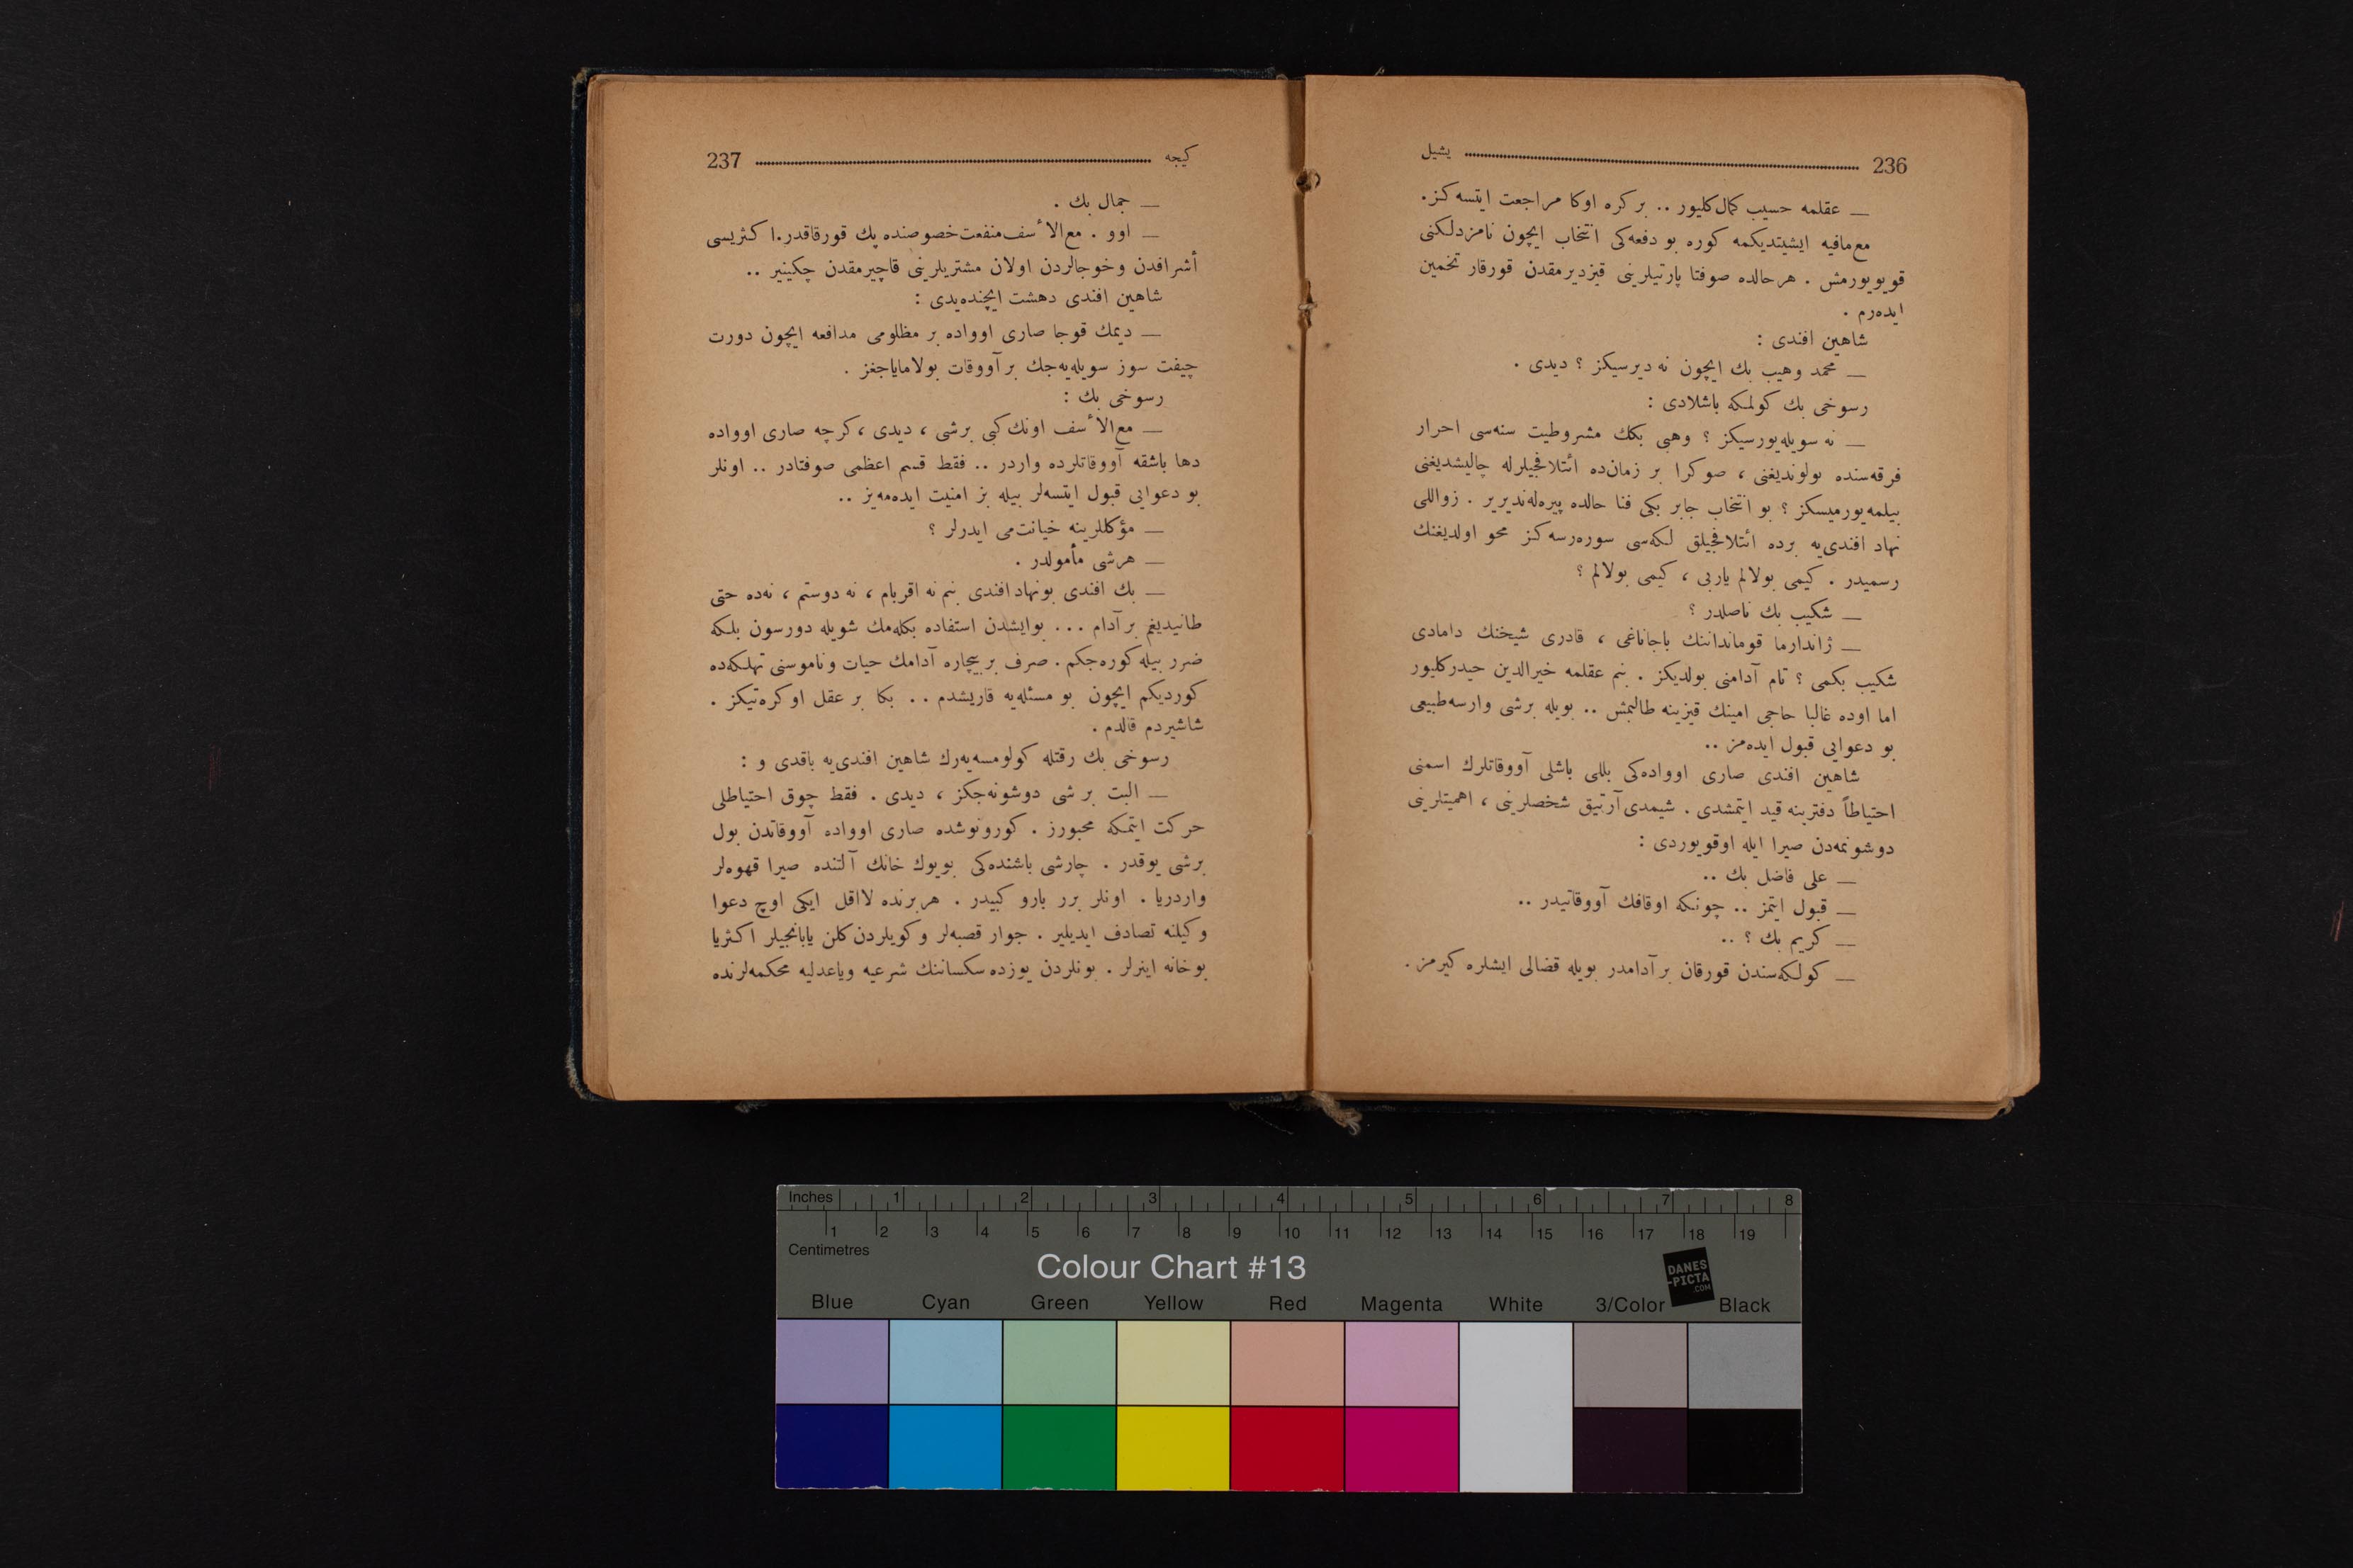 236 يشيل
— عقلمه حسيب كمال كليور .. بر كره اوكا مراجعت ايتسه كز.
مع مافيه ايشيتديكمه كوره بو دفعه كى انتخاب ايچون نامزدلكنى
قويويورمش . هر حالده صوفتا پارتيلرينى قيزديرمقدن قورقار تخمين
ايده رم .
شاهين افندى :
— محمد وهيب بك ايچون نه ديرسيكز ؟ ديدى .
رسوخى بك كولمكه باشلادى :
— نه سويله يورسيكز ؟ وهبى بكك مشروطيت سنه سى احرار
فرقه سنده بولونديغنى ، صوكرا بر زمان ده ائتلافجيلرله چاليشديغنى
بيلمه يورميسكز ؟ بو انتخاب جابر بكى فنا حالده پيره له نديرير . زواللى
نهاد افندى يه برده ائتلافجيلق لكه سى سوره رسه كز محو اولديغنك
رسميدر . كيمى بولالم ياربى ، كيمى بولالم ؟
— شكيب بك ناصلدر ؟
— ژاندارما قوماندانك باجاناغى ، قادرى شيخنك دامادى
شكيب بكمى ؟ تام آدامنى بولديكز . بنم عقلمه خيرالدين حيدر كليور
اما اوده غالبا حاجى امينك قيزينه طالبمش .. بويله برشى وارسه طبيعى
بو دعوايى قبول ايده مز ..
شاهين افندى صارى اوواده كى بللى باشلى آووقاتلرك اسمنى
احتياطاً دفترينه قيد ايتمشدى . شيمدى آرتيق شخصلرينى ، اهميتلرينى
دوشونمه دن صيرا ايله اوقويوردى :
— على فاضل بك ..
— قبول ايتمز .. چونكه اوقافك آووقاتيدر ..
— كريم بك ؟ ..
— كولكه سندن قورقان بر آدامدر بويله قضالى ايشلره كيرمز .
كيجه 237
— جمال بك .
— اوو . مع الأسف منفعت خصوصنده پك قورقاقدر. اكثريسى
أشرافدن و خوجالردن اولان مشتريلرينى قاچيرمقدن چكينير ..
شاهين افندى دهشت ايچنده يدى :
— ديمك قوجا صارى اوواده بر مظلومى مدافعه ايچون دورت
چيفت سوز سويله يه جك بر آووقات بولاماياجغز .
رسوخى بك :
— مع الأسف اونك كبى برشى ، ديدى ، كرچه صارى اوواده
دها باشقه آووقاتلرده واردر .. فقط قسم اعظمى صوفتادر .. اونلر
بو دعوايى قبول ايتسه لر بيله بز امنيت ايده مه يز ..
— مؤكللرينه خيانت مى ايدرلر ؟
— هرشى مأمولدر .
— بك افندى بو نهاد افندى بنم نه اقربام ، نه دوستم ، نه ده حتى
طانيديغم بر آدام ... بو ايشدن استفاده بكله مك شويله دورسون بلكه
ضرر بيله كوره جكم . صرف بر بيچاره آدامك حيات و ناموسنى تهلكه ده
كورديكم ايچون بو مسئله يه قاريشدم .. بكا بر عقل اوكره تيكز .
شاشيردم قالدم .
رسوخى بك رقتله كولومسه يه رك شاهين افندى يه باقدى و :
— البت بر شى دوشونه جكز ، ديدى . فقط چوق احتياطلى
حركت ايتمكه مجبورز . كورونوشده صارى اوواده آووقاتدن بول
برشى يوقدر . چارشى باشنده كى بويوك خانك آلتنده صيرا قهوه لر
واردريا . اونلر برر بارو كبيدر . هر برنده لااقل ايكى اوچ دعوا
وكيلنه تصادف ايديلير . جوار قصبه لر و كويلردن كلن يابانجيلر اكثريا
بو خانه اينرلر . بونلردن يوزده سكساننك شرعيه وياعدليه محكمه لرنده
Inches 1 2 3 4 5 6 7 8
1 2 3 4 5 6 7 8 9 10 11 12 13 14 15 16 17 18 19
Centimetres
Colour Chart #13
DANES
-PICTA
.COM
Blue Cyan Green Yellow Red Magenta White 3/Color Black